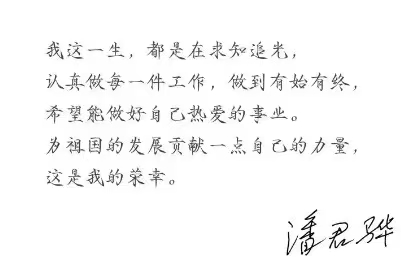 我这一生，都是在求知追光，
认真做每一件工作，做到有始有终，
希望能做好自己热爱的事业。
为祖国的发展贡献一点自己的力量，
这是我的荣幸。
潘君骅